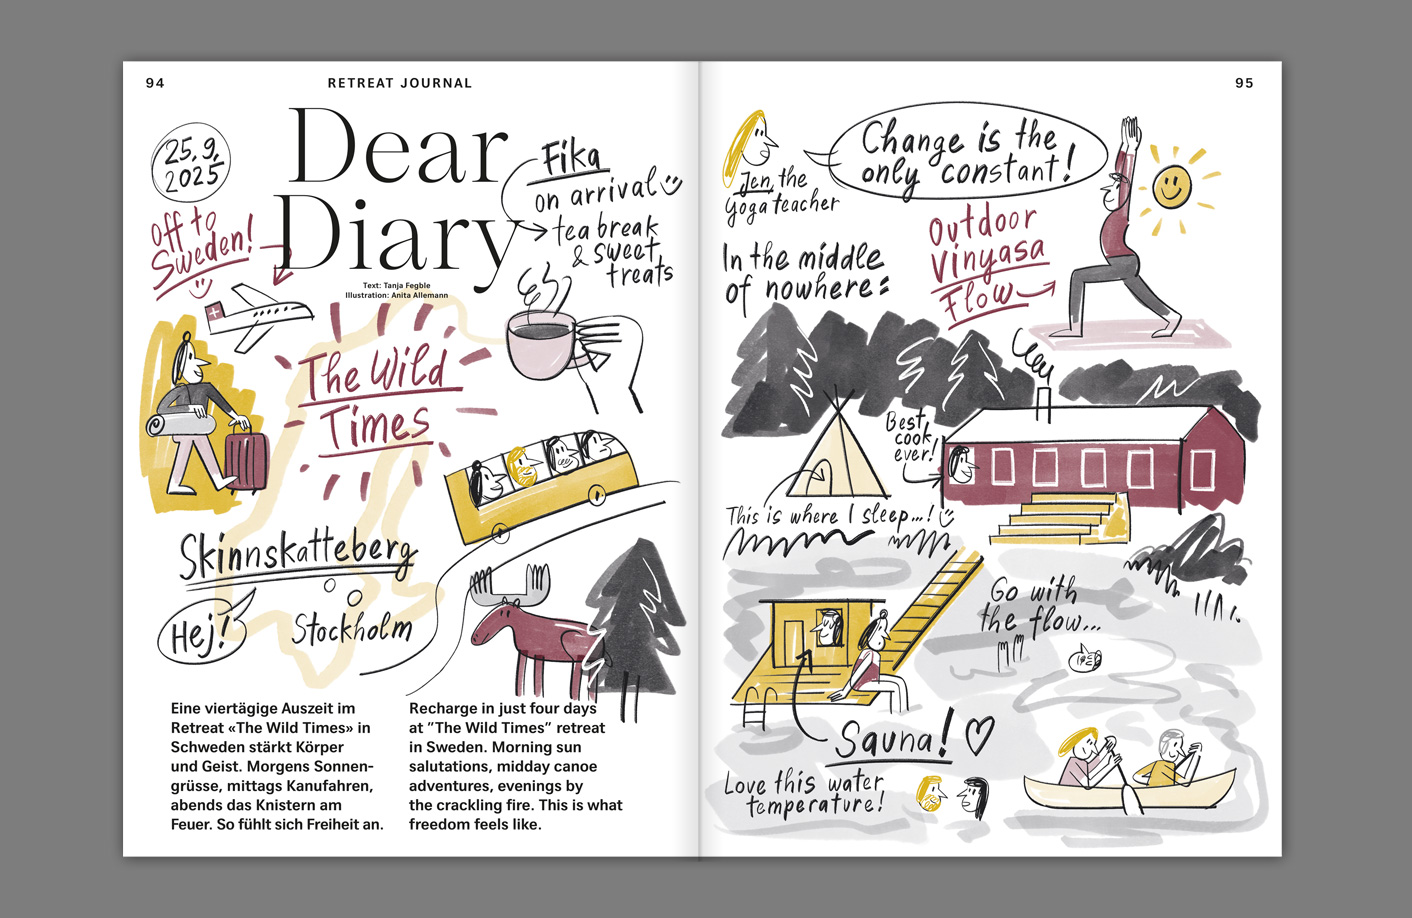 94
RETREAT JOURNAL
25.9.
2025
Dear
Diary
Text: Tanja Fegble
Illustration: Anita Allemann
Off to
Sweden!
Fika
on arrival
tea break
& sweet
treats
The Wild
Times
Skinnskatteberg
Hej!
Stockholm
Eine viertägige Auszeit im
Retreat «The Wild Times» in
Schweden stärkt Körper
und Geist. Morgens Sonnen-
grüsse, mittags Kanufahren,
abends das Knistern am
Feuer. So fühlt sich Freiheit an.
Recharge in just four days
at ”The Wild Times” retreat
in Sweden. Morning sun
salutations, midday canoe
adventures, evenings by
the crackling fire. This is what
freedom feels like.
95
Jen, the
Yoga teacher
Change is the
only constant!
Outdoor
Vinyasa
Flow
In the middle
of nowhere:
Best
cook
ever!
This is where I sleep...!
Go with
the flow...
Sauna!
Love this water
temperature!